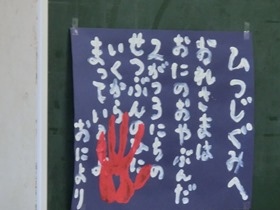 ひつじぐみへ
おれさまは
おにのおやぶんだ
2がつ3にちの
せつぶんのひに
いくから
まっている
おにより